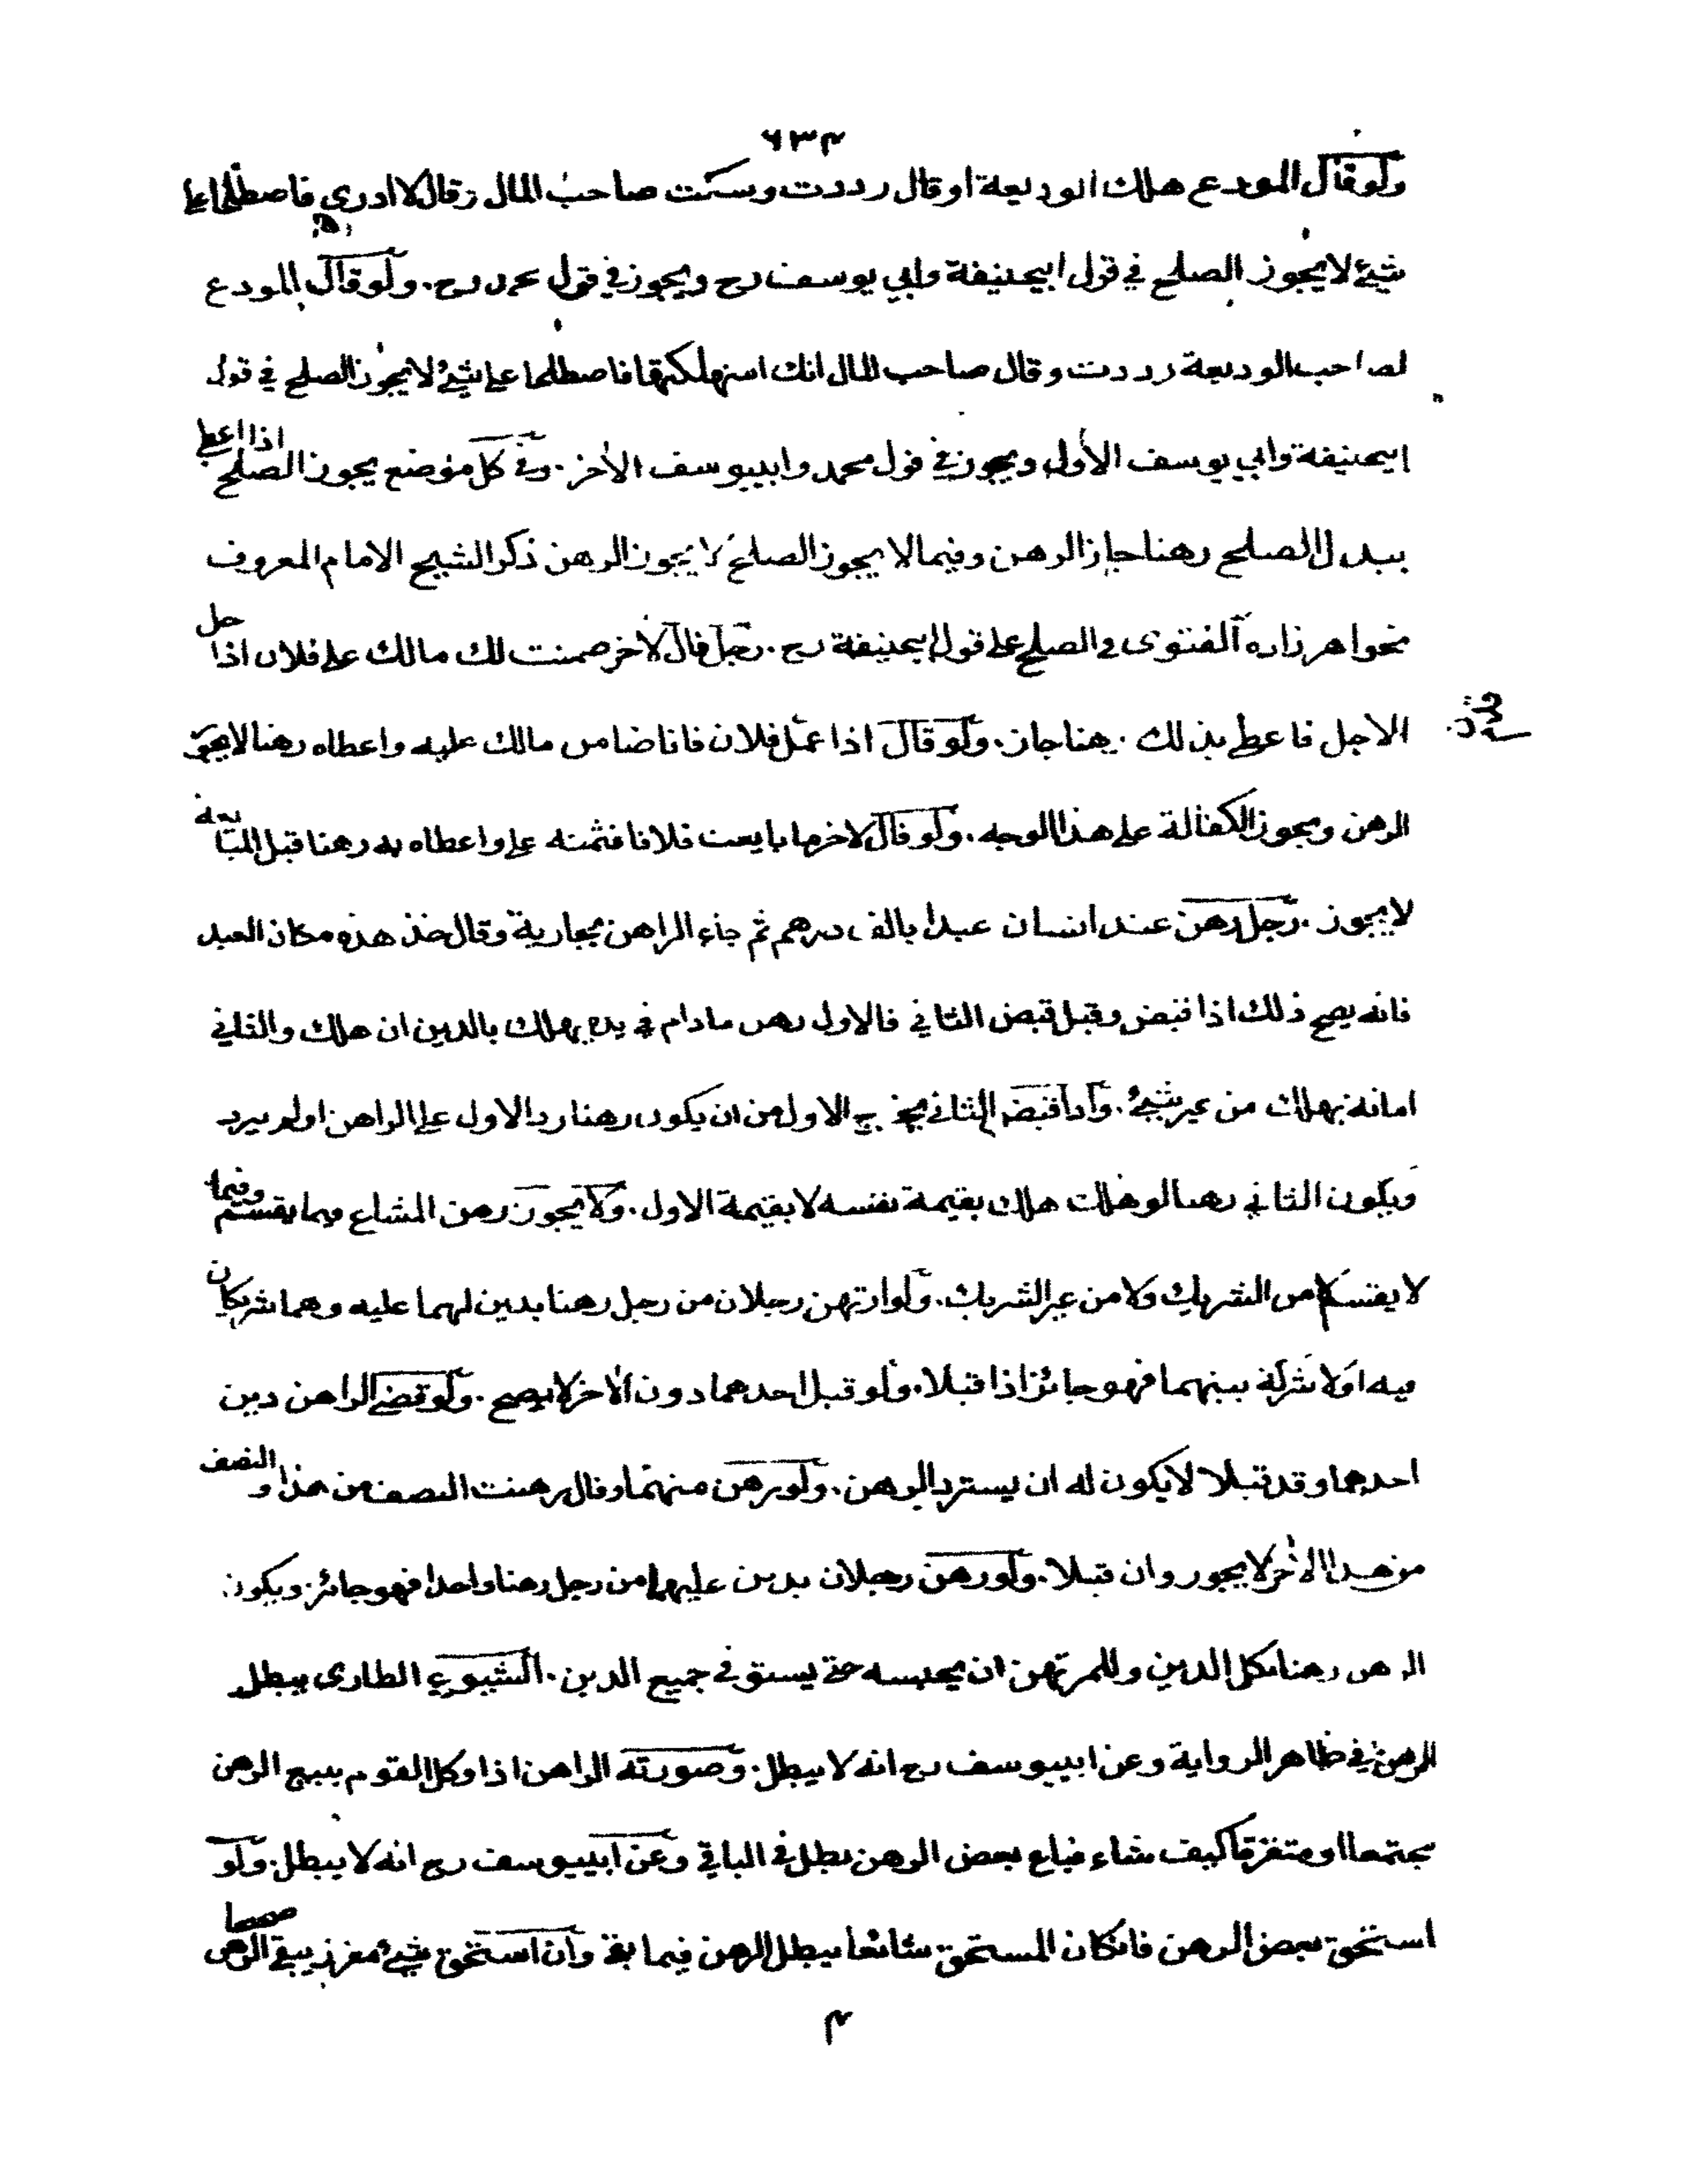 ٦٣٤
ولو قال المودع هلك الوديعة او قال رددت وسكت صاحب المال وقال لا ادرى فاصطلحا على
شيئ لا يجوز الصلح في قول ابيحنيفة وابي يوسف رح ويجوز في قول محمد رح. ولو قال المودع
لصاحب الوديعة رددت وقال صاحب المال انك استهلكتها فاصطلحا على شيئ لا يجوز الصلح في قول
ابيحنيفة وابي يوسف الأول ويجوز في قول محمد وابييوسف الأخر. وفي كل موضع يجوز الصلح اذا اعطى
ببدل الصلح رهنا جاز الرهن وفيما لا يجوز الصلح لا يجوز الرهن ذكر الشيخ الامام المعروف
بخواهرزاده الفتوى في الصلح على قول ابيحنيفة رح. رجل قال لأخر ضمنت لك مالك على فلان اذا حل
الاجل فاعطى بذلك رهنا جاز. ولو قال اذا عمل فلان فانا ضامن مالك عليه واعطاه رهنا لا يجوز
الرهن ويجوز الكفالة على هذا الوجه. ولو قال لاخر ما بايعت فلانا فثمنه علي واعطاه به رهنا قبل المبايعة
لا يجوز. رجل رهن عند انسان عبدا بالف درهم ثم جاء الراهن بجارية وقال خذ هذه مكان العبد
فانه يصح ذلك اذا قبض وقبل قبض الثاني فالاول رهن مادام في يده يهلك بالدين ان هلك والثاني
امانة يهلك من غير شيئ. واذا قبض الثاني يخرج الاول من ان يكون رهنا رد الاول على الراهن او لم يرد
ويكون الثاني رهنا لو هلك هلك بقيمة نفسه لا بقيمة الاول. ولا يجوز رهن المشاع فيما يقسم وفيما
لا يقسم من الشريك ولا من غير الشريك. ولو ارتهن رجلان من رجل رهنا بدين لهما عليه وهما شريكان
فيه او لا شركة بينهما فهو جائز اذا قبلا. ولو قبل احدهما دون الأخر لا يصح. ولو قضى الراهن دين
احدهما وقد قبلا لا يكون له ان يسترد الرهن. ولو رهن منهما وقال رهنت النصف من هذا و النصف
من هذا الأخر لا يجوز وان قبلا. ولو رهن رجلان بدين عليهما من رجل رهنا واحدا فهو جائز ويكون
الرهن رهنا بكل الدين وللمرتهن ان يحبسه حتى يستوفي جميع الدين. الشيوع الطارى يبطل
الرهن في ظاهر الرواية وعن ابييوسف رح انه لا يبطل. وصورته الراهن اذا وكل القوم ببيع الرهن
مجتمعا او متفرقا كيف شاء فباع بعض الرهن بطل في الباقي وعن ابييوسف رح انه لا يبطل. ولو
استحق بعض الرهن فانكان المستحق شائعا يبطل الرهن فيما بقي وان استحق شيئ مفرز يبقى الرهن صحيحا
م